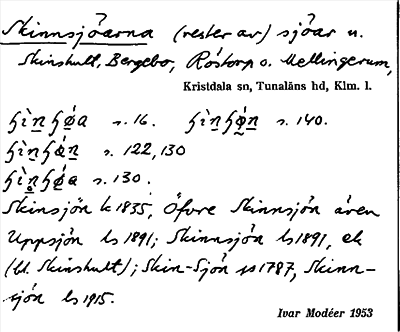 Skinnsjöarna (rester av) sjöar u.
Skinshult, Bergebo, Röstorp o. Mellingerum,
Kristdala sn, Tunaläns hd, Klm. l.
s. 16. s. 140.
s. 122, 130
s. 130.
Skinsjön k 1835, Öfvre Skinnsjön även
Uppsjön ls 1891; Skinnsjön ls 1891, ek
(bl. Skinshult); Skin-Sjön 1787, Skinn-
sjön ls 1915.
Ivar Modéer 1953